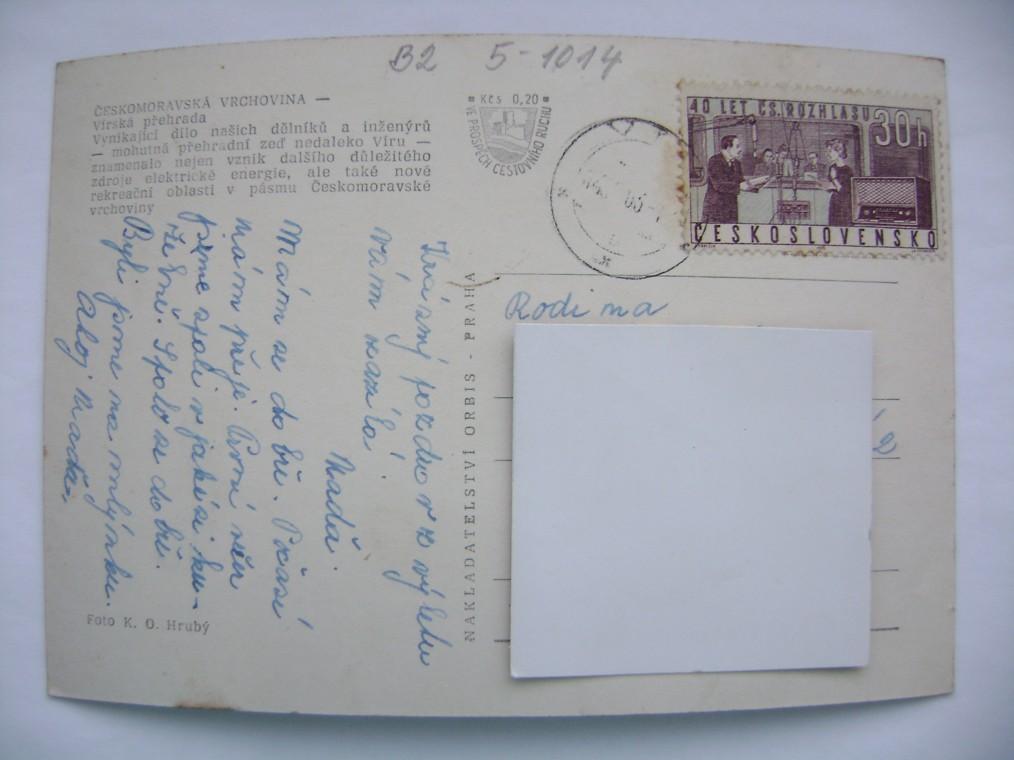 B2 5-1014
ČESKOMORAVSKÁ VRCHOVINA —
Vírská přehrada
Vynikající dílo našich dělníků a inženýrů
— mohutná přehradní zeď nedaleko Víru —
znamenalo nejen vznik dalšího důležitého
zdroje elektrické energie, ale také nové
rekreační oblasti v pásmu Českomoravské
vrchoviny
Kčs 0,20
VE PROSPĚCH CESTOVNÍHO RUCHU
40 LET ČS. ROZHLASU
30h
ČESKOSLOVENSKO
Krásný pozdrav z výletu
vám zasílá
Naďa.
Mám se dobře. Počasí
nám přeje. První noc
jsme spali v jakési ku-
želně. Spalo se dobře.
Byli jsme na mlýnku.
Ahoj Naďa.
NAKLADATELSTVÍ ORBIS - PRAHA
Rodina
2
Foto K. O. Hrubý